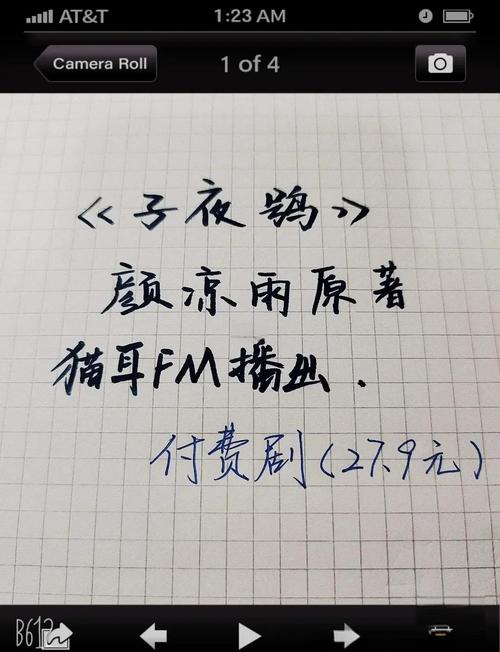 AT&T 1:23 AM
Camera Roll 1 of 4
《子夜鸮》
颜凉雨原著
猫耳FM播出.
付费剧(27.9元)
B612